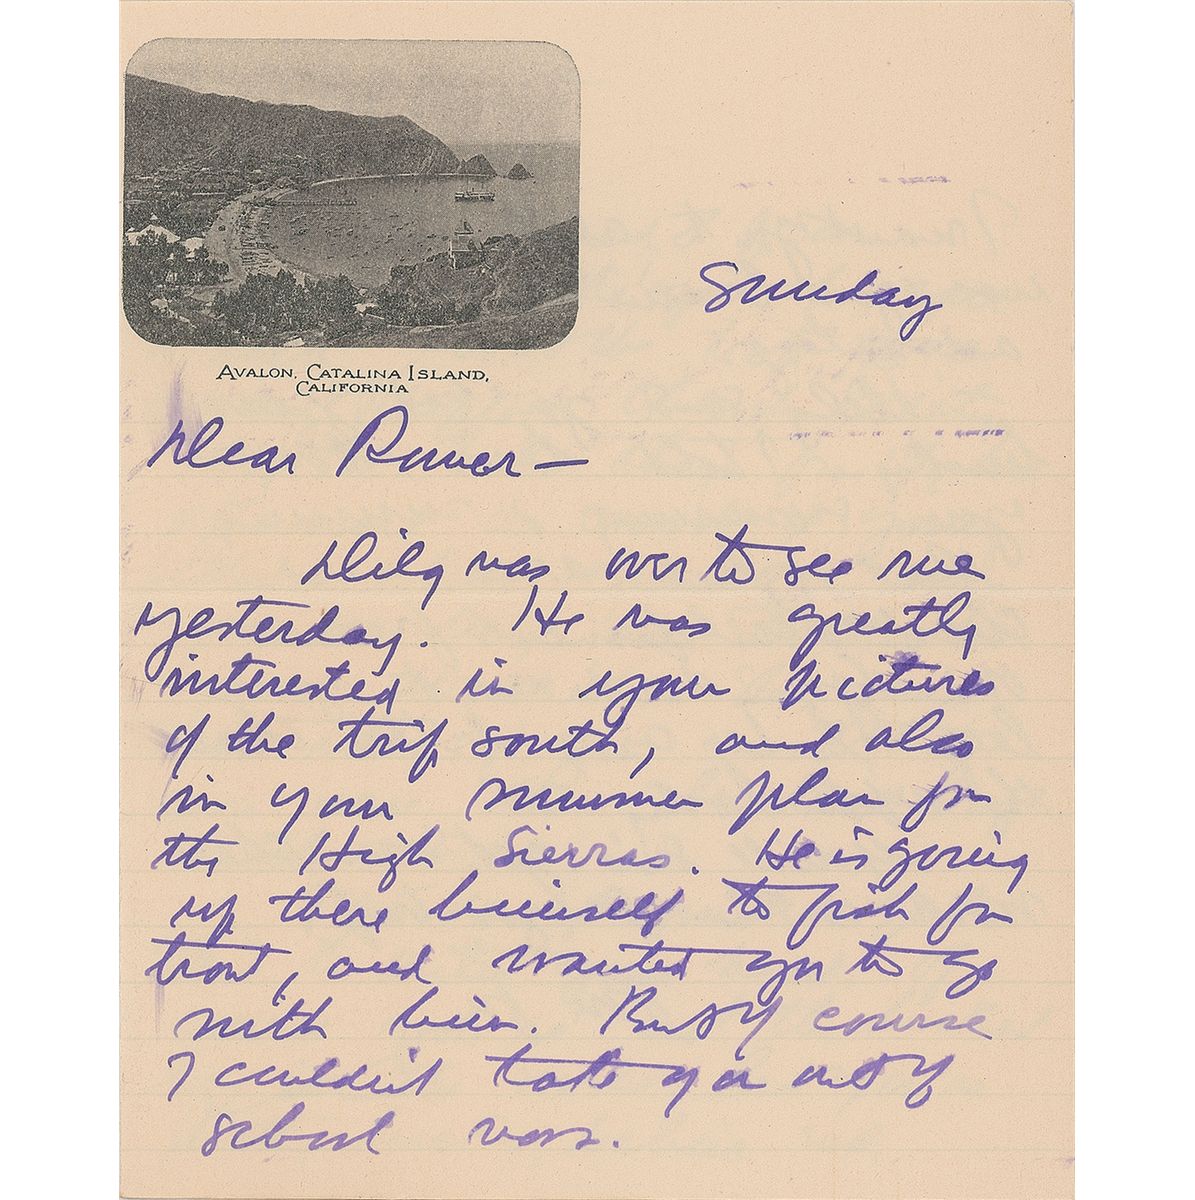 Sunday
AVALON, CATALINA ISLAND,
CALIFORNIA
Dear Romer—
Dilg was over to see me
yesterday. He was greatly
interested in your pictures
of the trip south, and also
in your summer plan for
the High Sierras. He is going
up there himself to fish for
trout, and wanted you to go
with him. But of course
I couldn't take you out of
school now.